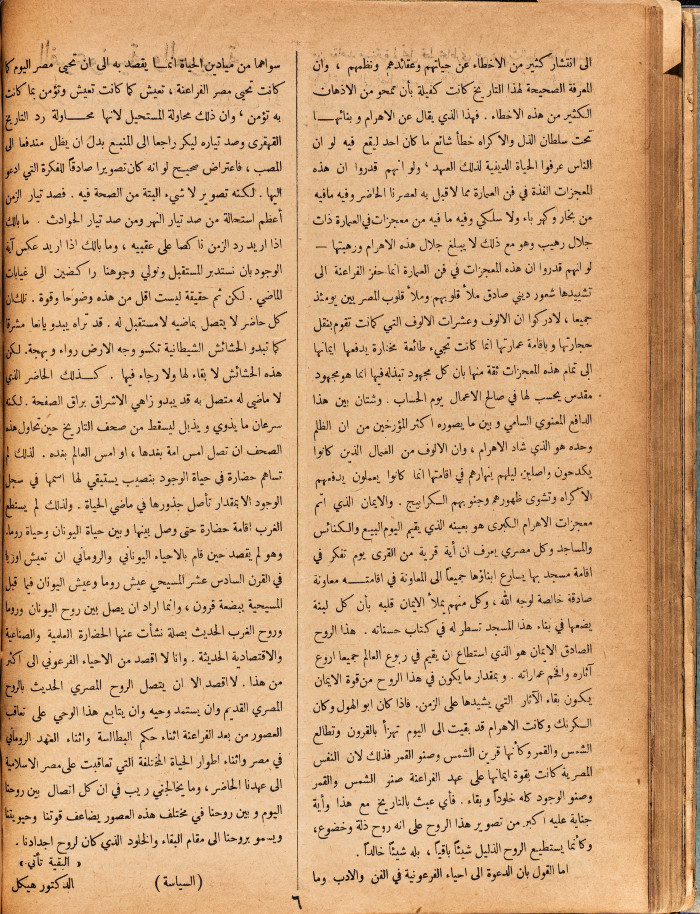 الى انتشار كثير من الاخطاء عن حياتهم وعقائدهم ونظمهم ، وان
المعرفة الصحيحة لهذا التاريخ كانت كفيلة بأن تمحو من الاذهان
الكثير من هذه الاخطاء . فهذا الذي يقال عن الاهرام و بنائها
تحت سلطان الذل والاكراه خطأ شائع ما كان احد ليقع فيه لو ان
الناس عرفوا الحياة الدينية لذلك العهد ، ولو انهم قدروا ان هذه
المعجزات الفذة في فن العمارة مما لا قبل به لعصرنا الحاضر وفيه مافيه
من بخار وكهرباء ولا سلكي وفيه ما فيه من معجزات في العمارة ذات
جلال رهيب وهو مع ذلك لا يبلغ جلال هذه الاهرام ورهبتها —
لو انهم قدروا ان هذه المعجزات في فن العمارة انما حفز الفراعنة الى
تشييدها شعور ديني صادق ملأ قلوبهم وملأ قلوب المصريين يومئذ
جميعا ، لادركوا ان الالوف وعشرات الالوف التي كانت تقوم بنقل
حجارتها و باقامة عمارتها انما كانت تجيء طائعة مختارة يدفعها ايمانها
الى تمام هذه المعجزات ثقة منها بان كل مجهود تبذله فيها انما هو مجهود
مقدس يحسب لها في صالح الاعمال يوم الحساب . وشتان بين هذا
الدافع المعنوي السامي و بين ما يصوره اكثر المؤرخين من ان الظلم
وحده هو الذي شاد الاهرام ، وان الالوف من العمال الذين كانوا
يكدحون واصلين ليلهم بنهارهم في اقامتها انما كانوا يعملون يدفعهم
الاكراه وتشوى ظهورهم وجنوبهم الكرابيج . والايمان الذي اتم
معجزات الاهرام الكبرى هو بعينه الذي يقيم اليوم البيع والكنائس
والمساجد وكل مصري يعرف ان أية قرية من القرى يوم تفكر في
اقامة مسجد بها يسارع ابناؤها جميعاً الى المعاونة في اقامته معاونة
صادقة خالصة لوجه الله ، وكل منهم يملأ الايمان قلبه بأن كل لبنة
يضعها في بناء هذا المسجد تسطر له في كتاب حسناته . هذا الروح
الصادق الايمان هو الذي استطاع ان يقيم في ربوع العالم جميعا اروع
آثاره وافخم عماراته . و بمقدار ما يكون في هذا الروح من قوة الايمان
يكون بقاء الآثار التي يشيدها على الزمن. فاذا كان ابو الهول وكان
الكرنك وكانت الاهرام قد بقيت الى اليوم تهزأ بالقرون وتطالع
الشمس والقمر وكأنها قرين الشمس وصنو القمر فذلك لان النفس
المصرية كانت بقوة ايمانها على عهد الفراعنة صنو الشمس والقمر
وصنو الوجود كله خلوداً و بقاء . فأي عبث بالتاريخ مع هذا وأية
جناية عليه اكبر من تصوير هذا الروح على انه روح ذلة وخضوع،
وكأنما يستطيع الروح الذليل شيئاً باقياً ، بله شيئاً خالداً .
اما القول بان الدعوة الى احياء الفرعونية في الفن والادب وما
سواهما من ميادين الحياة انما يقصد به الى ان تحيى مصر اليوم كما
كانت تحيى مصر الفراعنة ، تعيش كما كانت تعيش وتؤمن بما كانت
به تؤمن ، وان ذلك محاولة المستحيل لانها محاولة رد التاريخ
القهقرى وصد تياره ليكر راجعا الى المنبع بدل ان يظل مندفعا الى
المصب ، فاعتراض صحيح لو انه كان تصويرا صادقاً للفكرة التي ادعو
اليها . لكنه تصوير لا شيء البتة من الصحة فيه . فصد تيار الزمن
أعظم استحالة من صد تيار النهر ومن صد تيار الحوادث . ما بالك
اذا اريد رد الزمن ناكصا على عقبيه ، وما بالك اذا اريد عكس آية
الوجود بان نستدبر المستقبل ونولي وجوهنا راكضين الى غيابات
الماضي . لكن ثم حقيقة ليست اقل من هذه وضوحا وقوة . تلك ان
كل حاضر لا يتصل بماضيه لا مستقبل له . قد تراه يبدو يانعا مشرقا
كما تبدو الحشائش الشيطانية تكسو وجه الارض رواء و بهجة. لكن
هذه الحشائش لا بقاء لها ولا رجاء فيها . كذلك الحاضر الذي
لا ماضي له متصل به قد يبدو زاهي الاشراق براق الصفحة . لكنه
سرعان ما يذوي و يذبل ليسقط من صحف التاريخ حين تحاول هذه
الصحف ان تصل امس امة بغدها ، او امس العالم بغده . لذلك لم
تساهم حضارة في حياة الوجود بنصيب يستبقي لها اسمها في سجل
الوجود الا بمقدار تأصل جذورها في ماضي الحياة . ولذلك لم يستطع
الغرب اقامة حضارة حتى وصل بينها و بين حياة اليونان وحياة روما.
وهو لم يقصد حين قام بالاحياء اليوناني والروماني ان تعيش اوربا
في القرن السادس عشر المسيحي عيش روما وعيش اليونان فيما قبل
المسيحية ببضعة قرون ، وانما اراد ان يصل بين روح اليونان وروما
وروح الغرب الحديث بصلة نشأت عنها الحضارة العلمية والصناعية
والاقتصادية الحديثة . وانا لا اقصد من الاحياء الفرعوني الى اكثر
من هذا . لا اقصد الا ان يتصل الروح المصري الحديث بالروح
المصري القديم وان يستمد وحيه وان يتابع هذا الوحي على تعاقب
العصور من بعد الفراعنة اثناء حكم البطالسة واثناء العهد الروماني
في مصر واثناء اطوار الحياة المختلفة التي تعاقبت على مصر الاسلامية
الى عهدنا الحاضر، وما يخالجني ريب في ان كل اتصال بين روحنا
اليوم و بين روحنا في مختلف هذه العصور يضاعف قوتنا وحيويتنا
ويسمو بروحنا الى مقام البقاء والخلود الذي كان لروح اجدادنا .
« البقية تأتي »
(السياسة) الدكتور هيكل
٦